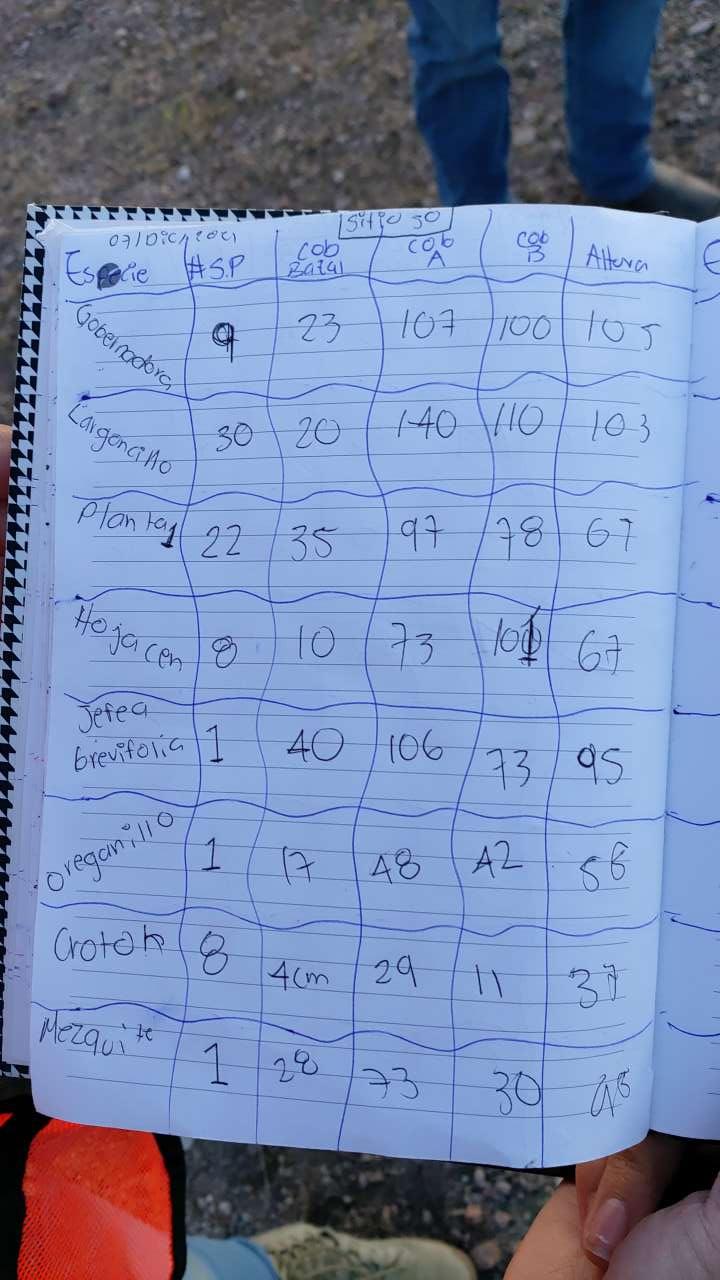 07/Dic/2021 Sitio 50
Especie #S.P Cob Basal Cob A Cob B Altura
Gobernadora 9 23 107 100 105
Largoncillo 30 20 140 110 103
Planta 1 22 35 97 78 67
Hojacen 8 10 73 101 67
Jefea brevifolia 1 40 106 73 95
Oreganillo 1 17 48 42 56
Croton 8 4cm 29 11 37
Mezquite 1 28 73 30